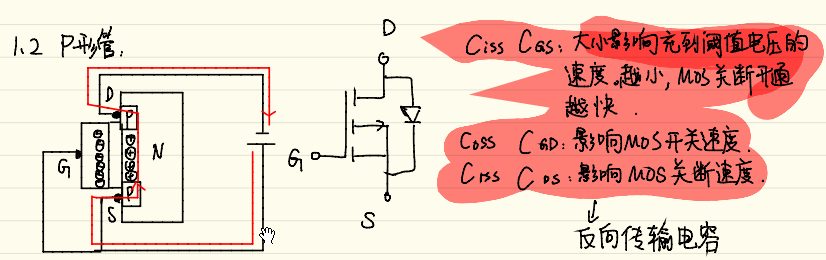 1.2 P形管.
D
P
N
G
P
S
D
G
S
Ciss CGS: 大小影响充到阈值电压的
速度.越小,MOS关断开通
越快.
Coss CGD: 影响MOS开关速度.
Crss CDS: 影响MOS关断速度.
反向传输电容